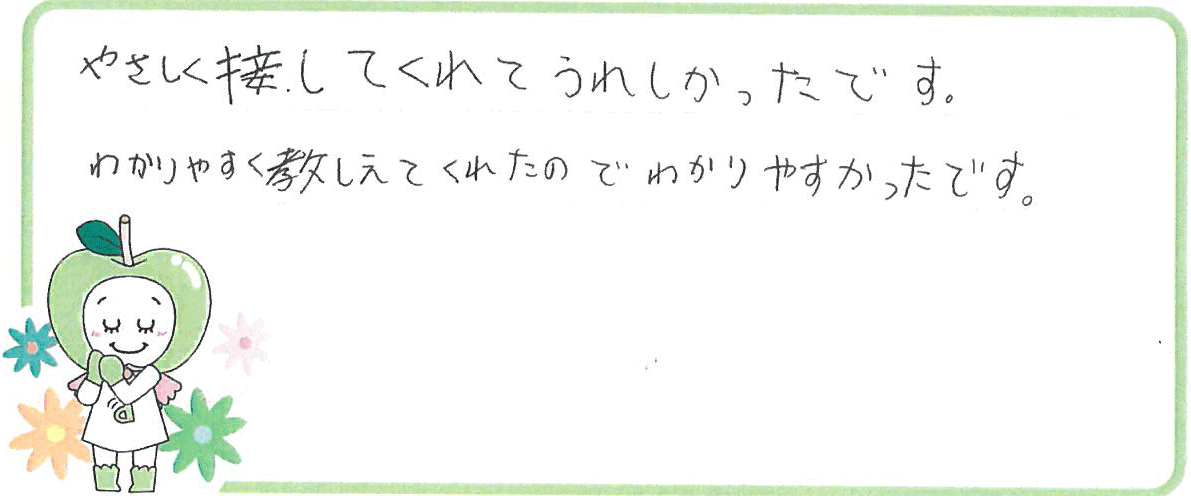 やさしく接してくれてうれしかったです。
わかりやすく教しえてくれたのでわかりやすかったです。